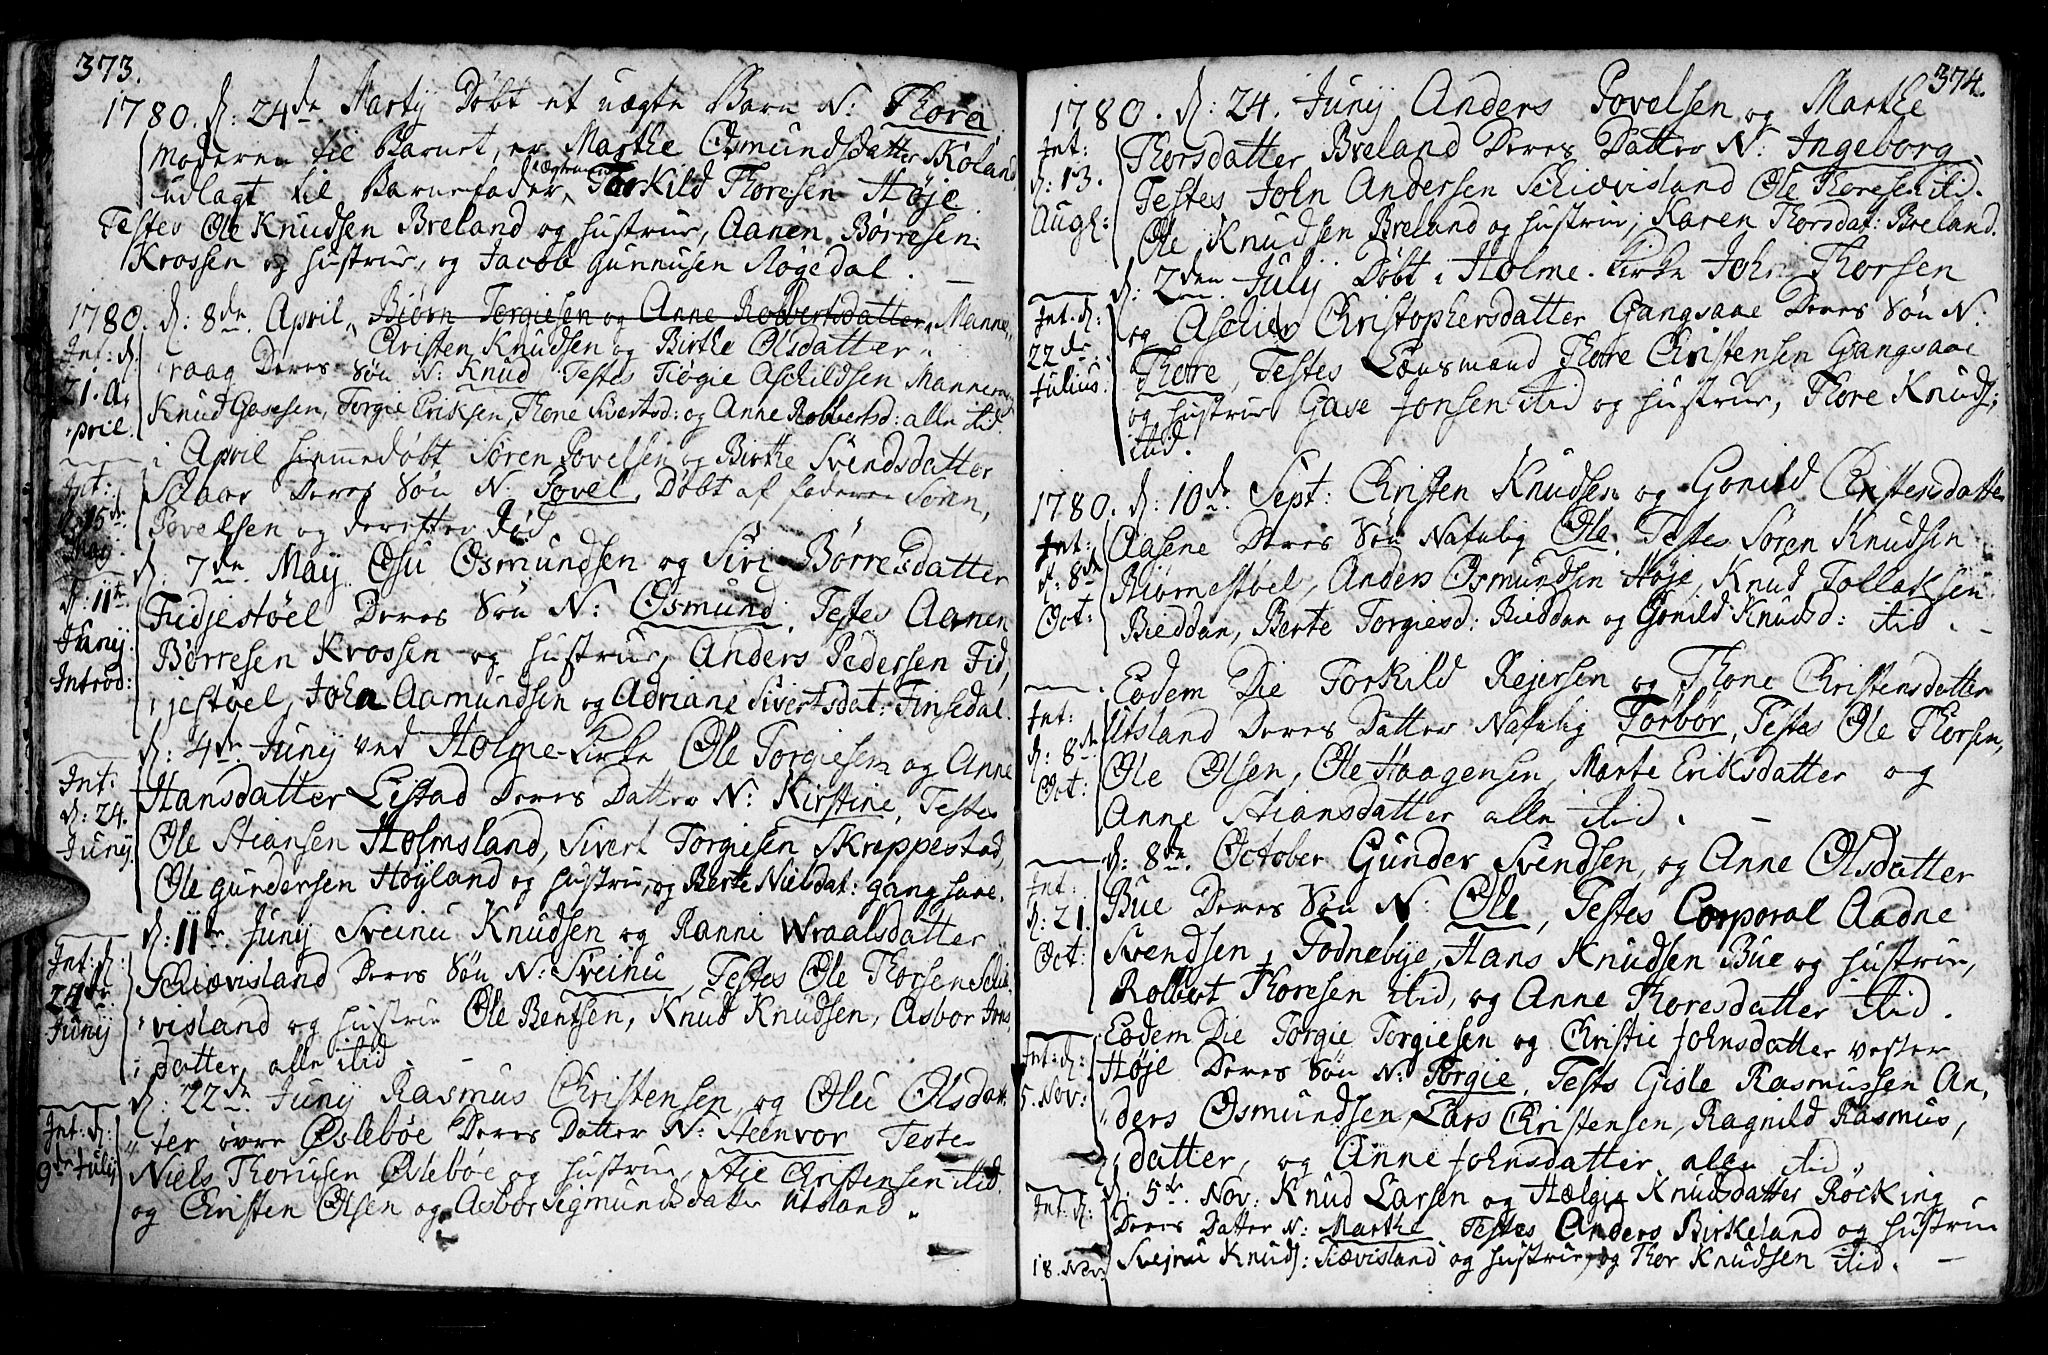 373.
1780. d: 24de Martij Døbt et uægte Barn N: Thore
Moderen til Barnet, er Marthe Osmundsdatter Skoland
udlagt til Barnefader, Torkild Thoresen Høje.
Testes Ole Knudsen Breland og hustrue, Aanen Børresen
Krossen og hustrue, og Jacob Gunnusen Røgedal.
1780. d: 8de April, Biørn Torgiesen og Anne Robbertsdatter Manne,
Christen Knudsen og Birthe Olsdatter
raag Deres Søn N: Knud Testes Tiøgie Aschildsen Manneraag
Knud Gasesen, Torgie Eriksen, Thone Sivertsd: og Anne Robbertsd: alle itid.
Int: d:
21. A,
pril.
i April hiemmedøbt Søren Povelsen og Birthe Svendsdatter
Schaar Deres Søn N: Povel, Døbt af faderen Søren,
Povelsen og derefter Død
Int:
d: 15de
May
d: 7de Maij Osu Osmundsen og Siri Børresdatter
Fidjestøel Deres Søn N: Osmund, Testes Aanen
Børresen Krossen og hustrue, Anders Pedersen Fid,
jestøel, John Aamundsen og Adriane Sivertsdat: Finsedal.
d: 11te
Junij
Introd:
d: 4de Junij ved Holme-Kirke Ole Torgiesen og Anne
Hansdatter Leistad Deres Datter N: Kirstine, Testes
Ole Stiansen Holmsland, Sivert Torgiesen Skreppestad,
Ole Gundersen Høyland og hustrue, og Berte Nielsdat: Gangsaae.
Int:
d: 24.
Junij
d: 11te Junij Sveinu Knudsen og Ranni Wraalsdatter
Schiævisland Deres Søn N: Sveinu, Testes Ole Thorsen Schiæ,
visland og hustrue Ole Bentsen, Knud Knudsen, Asbor Jens,
datter, alle itid.
Int: d:
24de
Junij
d: 22de Junij Rasmus Christensen og Olu Olsdat,
ter øvre Øslebøe Deres Datter N: Steenvor Testes
Niels Thorusen Øslebøe og hustrue, Stie Christensen itid.
og Christen Olsen og Asbor Segmundsdatter Utsland.
Int: d:
9de Julij
374.
1780. d: 24. Junij Anders Povelsen og Marthe
Thorsdatter Breland Deres Datter N: Ingeborg,
Testes John Andersen Schiævisland Ole Thoresen itid.
Ole Knudsen Breland og hustrue, Karen Thorsdat: Breland.
Int:
d: 13.
Augl:
d: 2den Julij Døbt i Holme-Kirke John Thorsen
og Aschier Christophersdatter Gangsaae Deres Søn N.
Thore, Testes Lænsmand Thore Christensen Gangsaae
og hustrue Gase Jonsen itid og hustrue, Thore Knuds:
itid.
Int. d:
22de
Julius.
1780. d: 10de Sept: Christen Knudsen og Gonild Christensdatter
Aasene Deres Søn Nafnlig Ole, Testes Søren Knudsen
Biørnestøel, Anders Osmundsen Høje, Knud Tollaksen
Bieddan, Berte Torgiesd: Bieddan og Gonild Knudsd: itid.
Int:
d: 8de
Oct:
Eodem Die Torkild Rejersen og Thone Christensdatter
Utsland Deres Datter Nafnlig Torbør, Testes Ole Thorsen,
Ole Olsen, Ole Haagensen, Marte Eriksdatter og
Anne Stiansdatter alle itid.
Int:
d: 8de
Oct:
d: 8de October Gunder Svendsen, og Anne Olsdatter
Bue Deres Søn N: Ole, Testes Corporal Aadne
Svendsen, Fodnebye, Hans Knudsen Bue og hustrue,
Robbert Thoresen itid, og Anne Thoresdatter itid.
Int:
d: 21.
Oct:
Eodem Die Torgie Torgiesen og Christie Johnsdatter vester
Høje Deres Søn N: Torgie, Testes Gisle Rasmussen An,
ders Osmundsen, Lars Christensen, Ragnild Rasmus,
datter, og Anne Johnsdatter alle itid.
Int: d:
5. Nov:
d: 5te Nov: Knud Larsen og Hælgie Knudsdatter Røcking
Deres Datter N: Marthe Testes Anders Birkeland og hustrue
Svejnu Knuds: Siævisland og hustrue, og Thor Knudsen itid.
Int: d:
18. Nov: